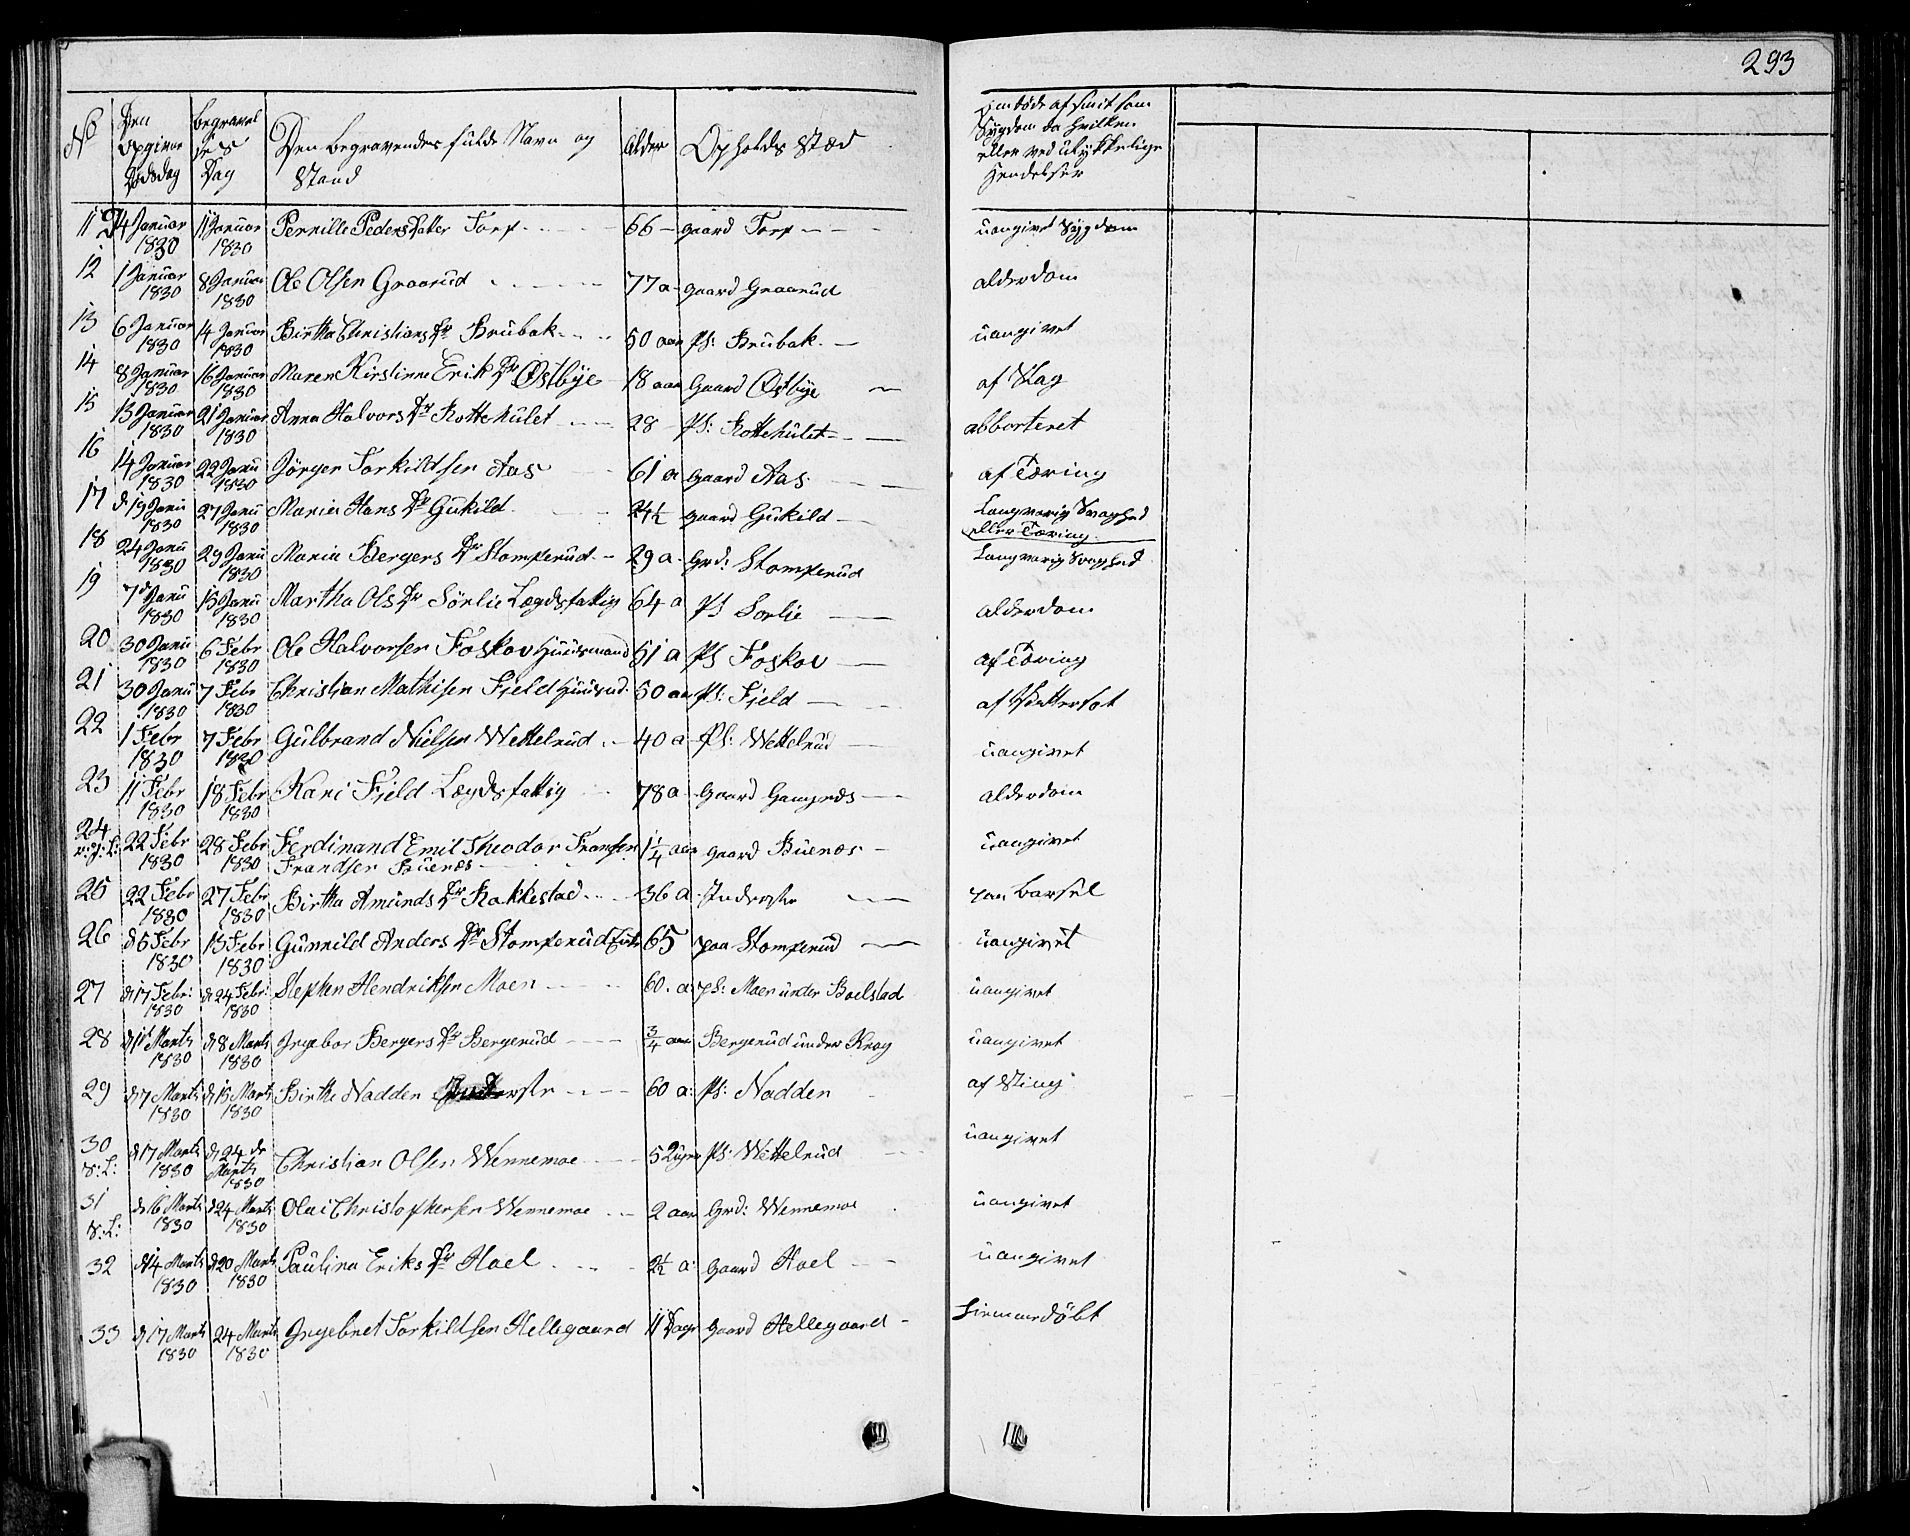 293
No
Den opgivne Dødsdag
Begravelses Dag
Den Begravendes fulde Navn og Stand
Alder
Opholds Stæd
om døde af smitsom
Sygdom da hvilken
eller ved ulykkelige
Hendelser
11 4 Januar 1830 11 Januar 1830 Pernille Peders Datter Torp 66 gaard Torp uangivet Sygdom
12 1 Januar 1830 8 Januar 1830 Ole Olsen Graarud 77 a gaard Graarud alderdom
13 6 Januar 1830 14 Januar 1830 Birtha Christians Dr Brubak 50 aar Ps: Brubak uangivet
14 8 Januar 1830 16 Januar 1830 Maren Kirstinne Erik Dr Østbye 18 aar Gaard Østbye af Slag
15 13 Januar 1830 21 Januar 1830 Anna Halvors Dr Rottehulet 28 Ps: Rottehulet abborteret
16 14 Januar 1830 22 Janu 1830 Jörger Torkildsen Aas 61 a gaard Aas af Tæring
17 d 19 Janu 1830 27 Janu 1830 Maria Hans Dr Gukild 24½ gaard Gukild Langvarig Svaghed
eller Tæring
18 24 Janu 1830 29 Janu 1830 Maria Bergers Dr Stomperud 29 a Grd: Stomperud Langvarig Svaghed
19 7 Janu 1830 15 Janu 1830 Martha Ols Dr Sörlie Lægdsfattig 64 a Ps Sorlie alderdom
20 30 Janu 1830 6 Febr 1830 Ole Halvorsen Foskov Huusmand 61 a Ps Foskov af Tæring
21 30 Janu 1830 7 Febr 1830 Christian Mathisen Fjeld 50 aar Ps: Fjeld
22 1 Febr 1830 7 Febr 1830 Gulbrand Nielsen Wettelrud 40 a Ps: Wettelrud uangivet
23 11 Febr 1830 18 Febr 1830 Kari Fjeld Lægdsfattig 78 a Gaard Gangnæs alderdom
24 22 Febr 1830 28 Febr 1830 Ferdinand Emil Theodor Fransen 1¼ aar gaard Buenæs uangivet
Frandsen Buenæs
25 22 Febr 1830 27 Febr 1830 Birtha Amunds Dr Rakkestad 36 a Inderste paa Barsel
26 d 6 Febr 1830 13 Febr 1830 Gunnild Anders Dr Stomperud 65 paa Stomperud uangivet
27 d 17 Febr: 1830 d 24 Febr: 1830 Stephen Hendriksen Moen 60 a Ps: Moen under Boelstad uangivet
28 d 1 Marts 1830 d 8 Marts 1830 Ingebor Bergers Dr Bergerud ¾ aar Bergerud under Krog uangivet
29 d 7 Marts 1830 d 15 Marts 1830 Birthe Nadden Inderste 60 a: Ps: Nadden af Sting
30 d 17 Marts 1830 d 24 de Marts 1830 Christian Olsen Wennemoe 5 Uger Ps: Wettelrud uangivet
31 d 16 Marts 1830 d 24 Marts 1830 Olai Christophersen Wennemoe 2 aar Grd: Wennemoe uangivet
32 d 14 Marts 1830 d 20 Marts 1830 Paulina Eriks Dr Hoel 2½ a: gaard Hoel uangivet
33 d 17 Marts 1830 24 Marts 1830 Ingebret Torkildsen Hellegaard 11 Dage gaard Hellegaard hiemmedöbt